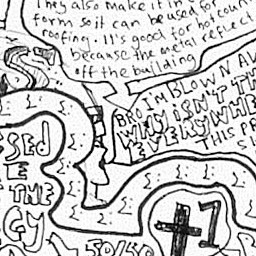 They also make it in
form so it can be used for
roofing. It's good for hot coun
because the metal reflect
off the building
S
I'M BLOWN AW
BRO WHY ISN'T TH
EVERYWHE
THIS PR
SED
E
THE
GY
†1